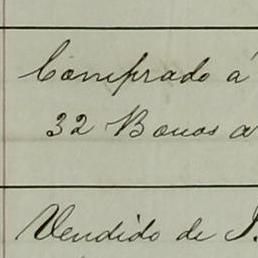 Comprado á
32 Bonos a
Vendido de J.